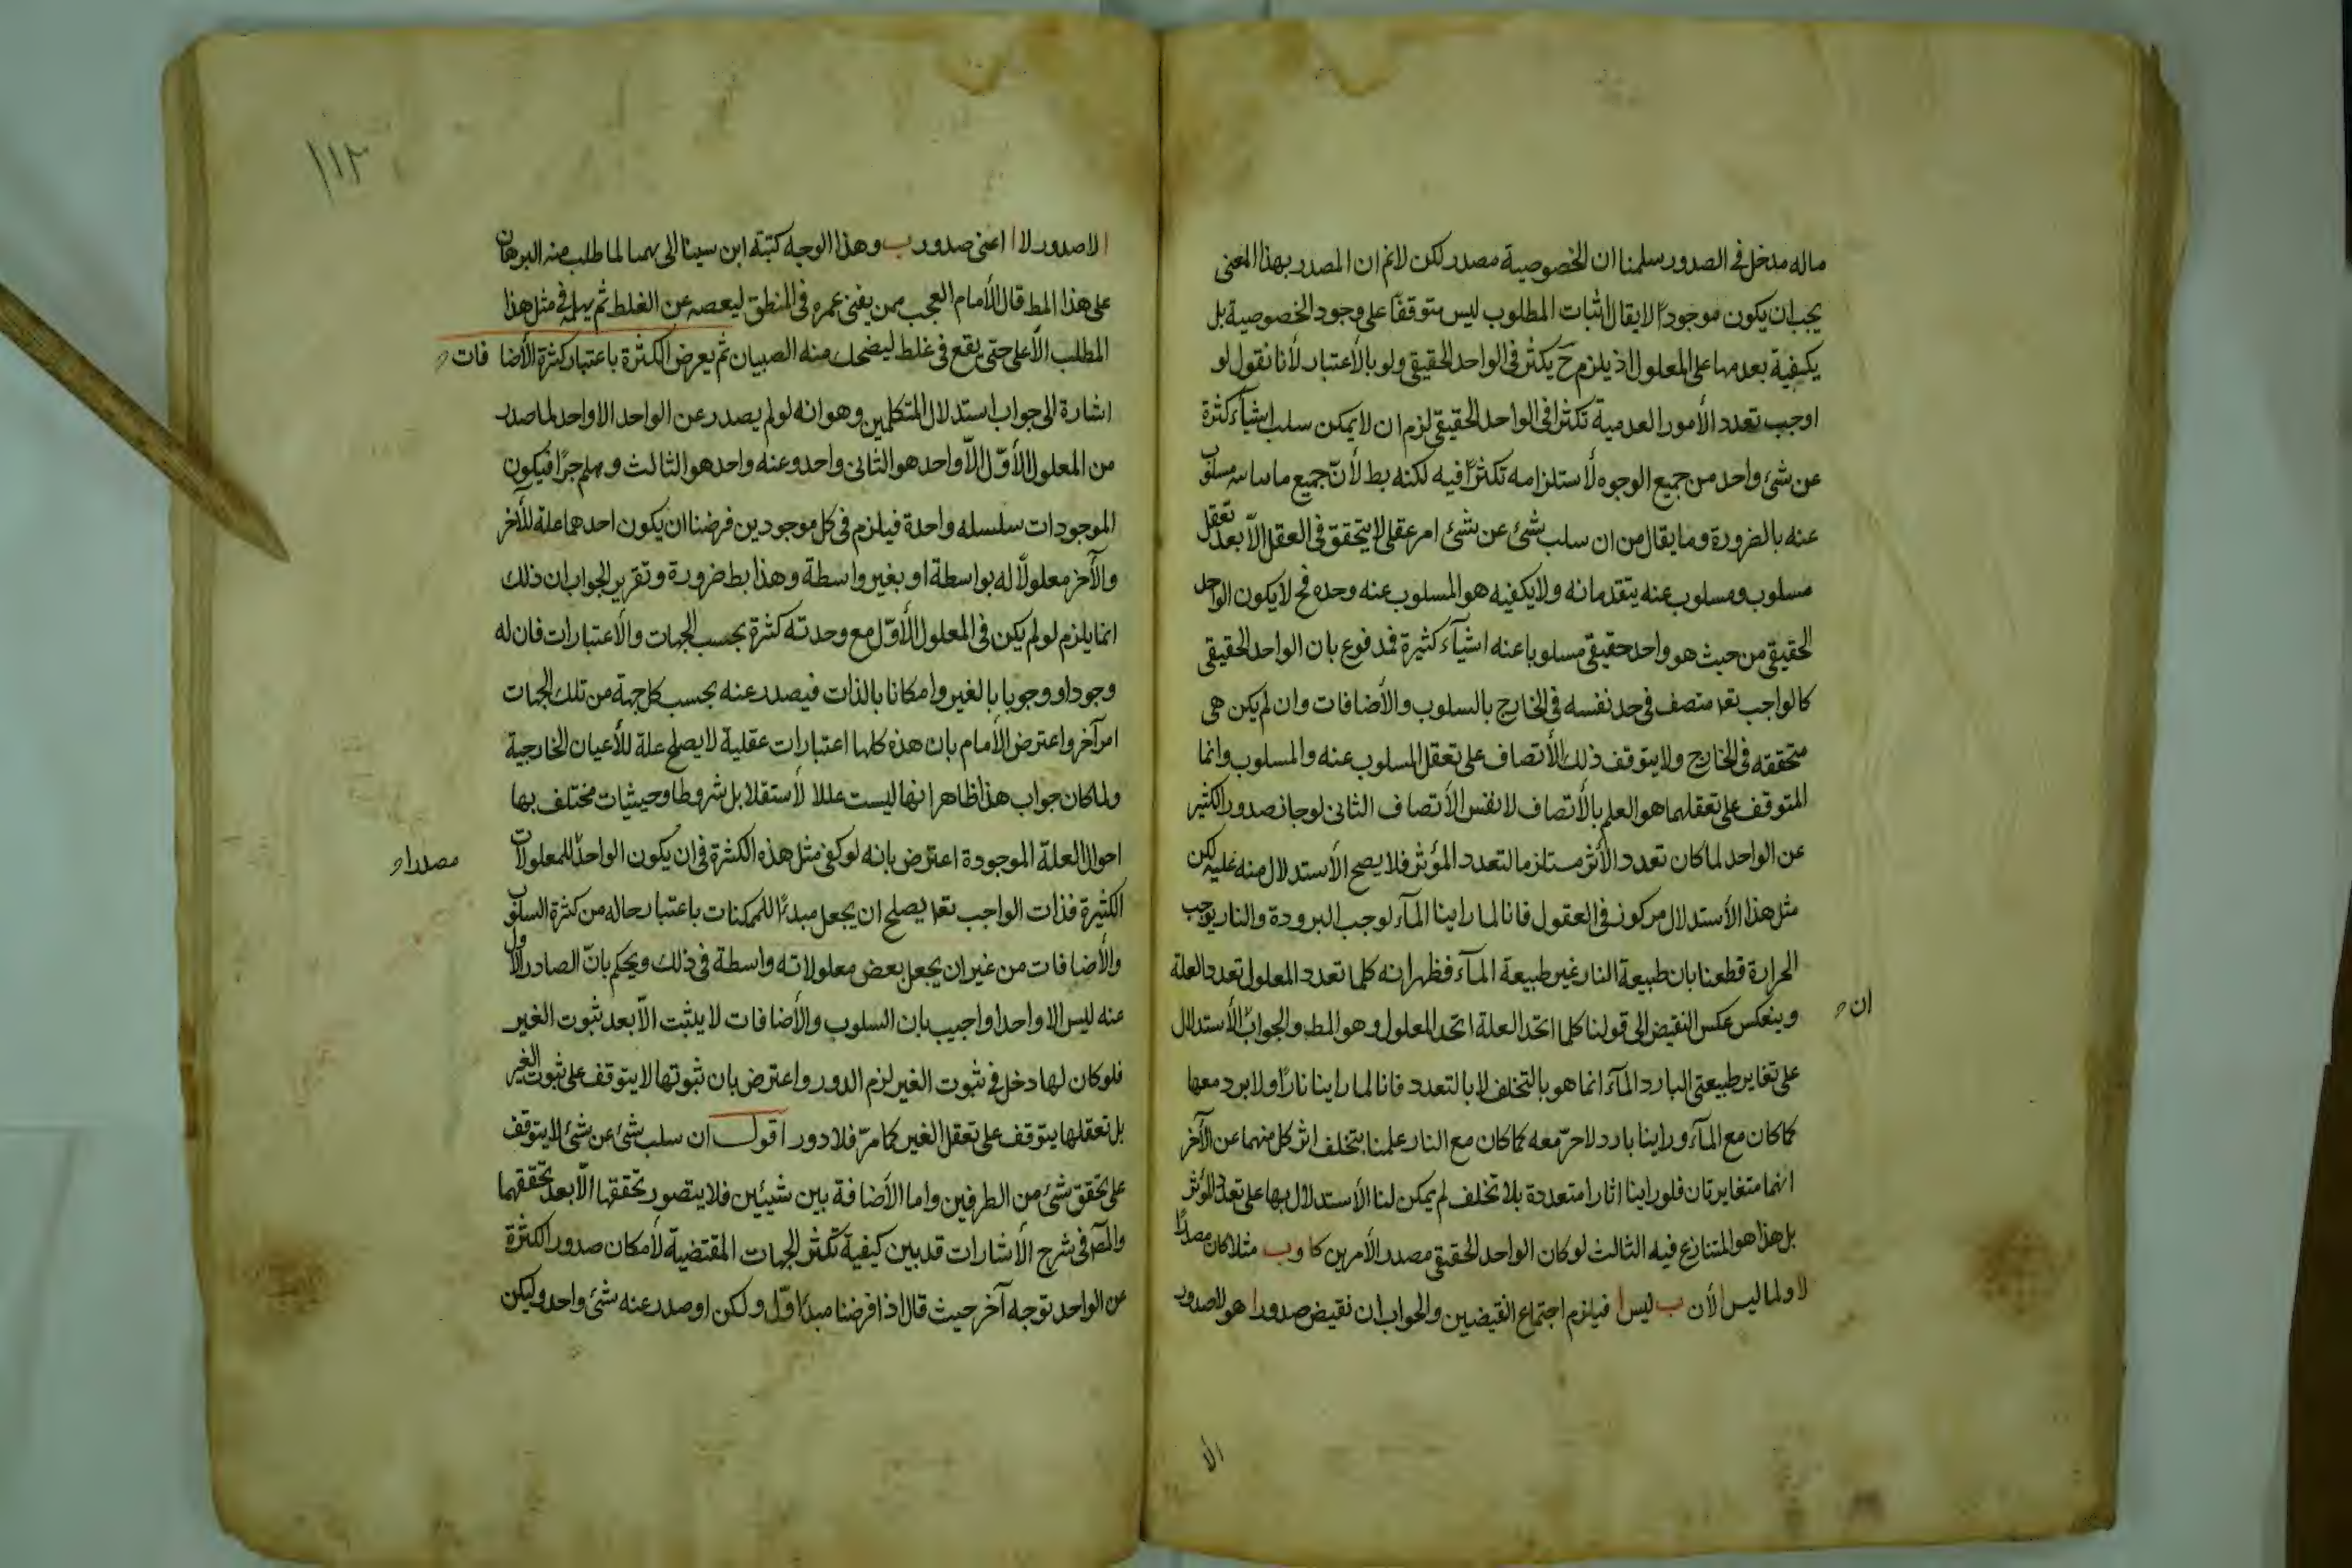 ماله مدخل فى الصدور سلمنا ان الخصوصية مصدر لكن لانم ان المصدر بهذا المعنى
يجب ان يكون موجودا لايقال اثبات المطلوب ليس متوقفا على وجود الخصوصية بل
يكفيه بعدمها على المعلول اذ يلزم ح يكثر فى الواحد الحقيقى ولو بالأعتبار لأنا نقول لو
اوجب تعدد الأمور العدمية تكثرا فى الواحد الحقيقى لزم ان لايمكن سلب اشيآء كثرة
عن شئ واحد من جميع الوجوه لأستلزامه تكثرا فيه لكنه بط لأن جميع ما مسلوب
عنه بالضرورة وما يقال من ان سلب شئ عن شئ امر عقلى لايتحقق فى العقل الا بعد تعقل
مسلوب ومسلوب عنه يتقدمانه ولايكفيه هو المسلوب عنه وحده فح لايكون الواحد
الحقيقى من حيث هو واحد حقيقى مسلوبا عنه اشيآء كثيرة فمدفوع بان الواحد الحقيقى
كالواجب تعا متصف فى حد نفسه فى الخارج بالسلوب والأضافات وان لم يكن هى
متحققه فى الخارج ولايتوقف ذلك الأتصاف على تعقل المسلوب عنه والمسلوب وانما
المتوقف على تعقلهما هو العلم بالأتصاف لا نفس الأتصاف الثانى لو جاز صدور الكثير
عن الواحد لما كان تعدد الأثر مستلزما لتعدد المؤثر فلا يصح الأستدلال منه عليه لكن
مثل هذا الأستدلال مركوز فى العقول فانا لما راينا المآء لوجب البرودة والنار يوجب
الحرارة قطعنا بان طبيعة النار غير طبيعة المآء فظهر انه كلما تعدد المعلول تعدد العلة
وينعكس عكس النقيض الى قولنا كلما اتحد العلة اتحد المعلول وهو المط والجواب الأستدلال
ان
على تغاير طبيعتى البارد المآء انما هو بالتخلف لا بالتعدد فانا لما راينا نارا ولا برد معها
كما كان مع المآء وراينا بارد لاحر معه كما كان مع النار علمنا بتخلف اثر كل منهما عن الآخر
انهما متغايرتان فلو راينا اثارا متعددة بلا تخلف لم يمكن لنا الأستدلال بها على تعدد المؤثر
بل هذا هو المتنازع فيه الثالث لو كان الواحد الحقيقى مصدر الأمرين كا وب مثلا كان مصدرا
لا ولما ليس ا لأن ب ليس ا فيلزم اجتماع النقيضين والجواب ان نقيض صدور ا هو لاصدور
الا
١١٢
ا لاصدور لا ا اعنى صدور ب وهذا الوجه كتبة ابن سينا الى لما طلب منه البرهان
على هذا المط قال الأمام العجب ممن يفنى عمره فى المنطق ليعصمه عن الغلط ثم يهمله فى مثل هذا
المطلب الأعلى حتى يقع فى غلط ليضحك منه الصبيان ثم يعرض الكثرة باعتبار كثرة الأضا فات
اشارة الى جواب استدلال المتكلمين وهو انه لو لم يصدر عن الواحد الا واحد لما صدر
من المعلول الأول الا واحد هو الثانى واحد وعنه واحد هو الثالث وهلم جرا فيكون
الموجودات سلسله واحدة فيلزم فى كل موجودين فرضنا ان يكون احدهما علة للآخر
والآخر معلولا له بواسطة او بغير واسطة وهذا بط ضرورة وتقرير الجواب ان ذلك
انما يلزم لو لم يكن فى المعلول الأول مع وحدته كثرة بحسب الجهات والأعتبارات فان له
وجودا ووجوبا بالغير وامكانا بالذات فيصدر عنه بحسب كل جهة من تلك الجهات
امر آخر واعترض الأمام بان هذه كلها اعتبارات عقلية لا يصلح علة للأعيان الخارجية
ولما كان جواب هذا ظاهرا انها ليست عللا لأستقلا بل شروطا وحيثيات مختلف بها
احوال العلة الموجودة اعترض بانه لو كفى مثل هذه الكثرة فى ان يكون الواحد للمعلولات
مصدرا
الكثيرة فذات الواجب تعا يصلح ان يجعل مبدءا للممكنات باعتبار حاله من كثرة السلوب
والأضافات من غير ان يجعل بعض معلولاته واسطة فى ذلك ويحكم بان الصادر الأول
عنه ليس الا واحدا واجيب بان السلوب والأضافات لا يثبت الا بعد ثبوت الغير
فلو كان لها دخل فى ثبوت الغير لزم الدور واعترض بان ثبوتها لايتوقف على ثبوت الغير
بل تعقلها يتوقف على تعقل الغير كما مر فلا دور اقول ان سلب شئ عن شئ لايتوقف
على تحقق شئ من الطرفين واما الأضافة بين شيئين فلا يتصور تحققها الا بعد تحققهما
والمصر فى شرح الأشارات قد بين كيفية تكثر الجهات المقتضية لأمكان صدور الكثرة
عن الواحد توجه آخر حيث قال اذا فرضنا مبدءا اول ولكن ا وصدر عنه شئ واحد وليكن